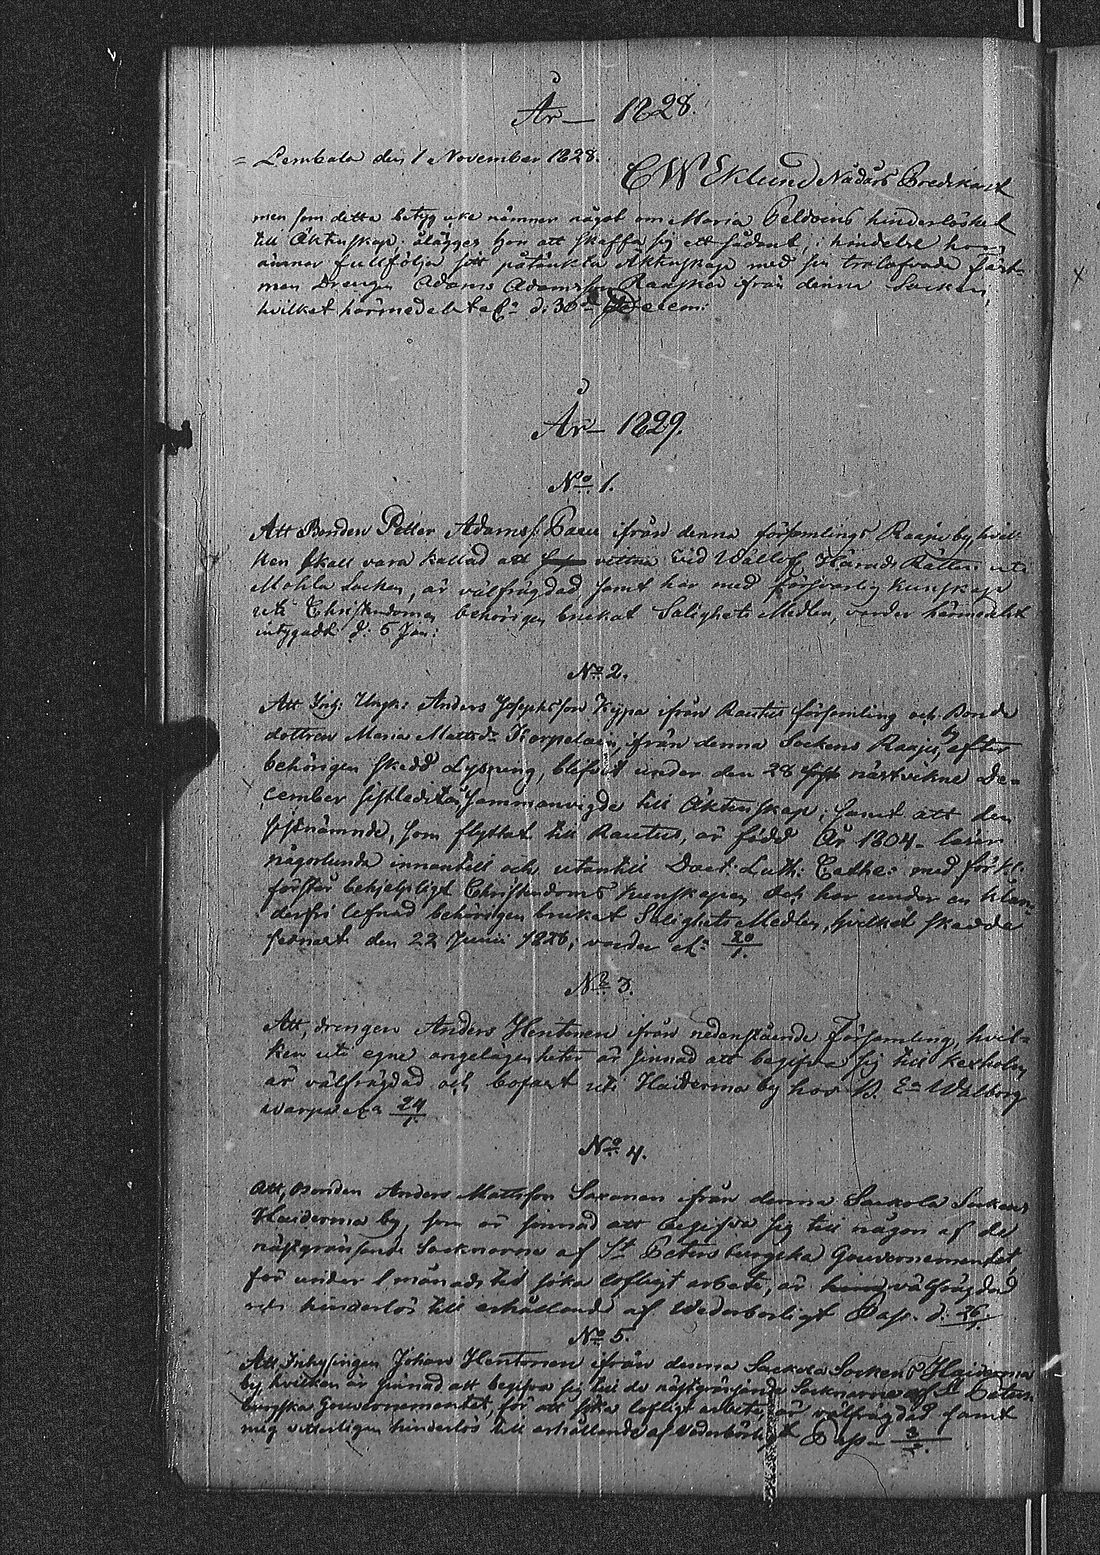 År 1828.
= Lembala den 1 November 1828.
C W Eklund Nådårs Predikant
men som detta betyg icke nämner något om Maria hinderlöshet
till Äktenskap; ålägges hon att skaffa sig ett sådant, i händelse hon
ämnar fullfölja sitt påtänkta Äktenskap med sin trolofvade Fäst-
man Drengen Adam Adamsson Raaska ifrån denna Socken,
hvilket härmedelst d: 30 Decem:
År 1829.
No 1.
Att Bonden Petter Adamss: Paeu ifrån denna församlings Raaju by, hvil-
ken skall vara kallad att vittna vid Härads Rätten uti
Mohla Socken, är välfrägdad samt har med försvarlig kunskap
uti Christendomen behörigen brukat Salighets Medlen, varder härmedelst
intygadt d: 5 Jan:
No 2.
Att Anders Josephsson ifrån Rautus församling och Bonde
dottren Maria Mattsdr Karpelain, ifrån denna Sockens Raaju by, efter
behörigen skedd Lysning, blefvit under den 28 nästvikne De-
cember sistledit sammanvigde till Äktenskap; samt att den
sistnämnde, som flyttat till Rautus, är född År 1804 läser
någorlunda innantill och utantill Doct: Luth: Cathe: med förkl:
förstår behjelpligt Christendoms kunskapen och har under en klan-
derfri lefnad behörigen brukat Salighets Medlen, hvilket skedde
senast den 22 Junii 1828; varder 20/1.
No 3.
Att, drengen Anders Hentonen ifrån nedanstående Församling, hvil-
ken uti egne angelägenheter är sinnad att begifva sig till Kexholm
är välfrägdad och bofast uti Haiderma by hos B. Ea Walborg
24/1.
No 4.
Att, Bonden Anders Mattsson Saxanen ifrån denna Sackola Sockens
Haiderma by, som är sinnad att begifva sig till någon af de
nästgränsande Socknarne af St Petersburgska Gouvernementet
för under 1 månads tid söka lofligt arbete, är välfrägdad
och hinderlös till erhållande af Wederbörligt Pass. d: 26/1.
No 5.
Att Inhysingen Johan Hentonen ifrån denna Sackola Socken o Haiderma
by hvilken är sinnad att begifva sig till de nästgränsande Socknarne af St Peters
burgska Gouvernementet, för att söka lofligt arbete, är välfrägdad samt
mig vitterligen hinderlös till erhållande af Wederbörligt Pass 3/2.